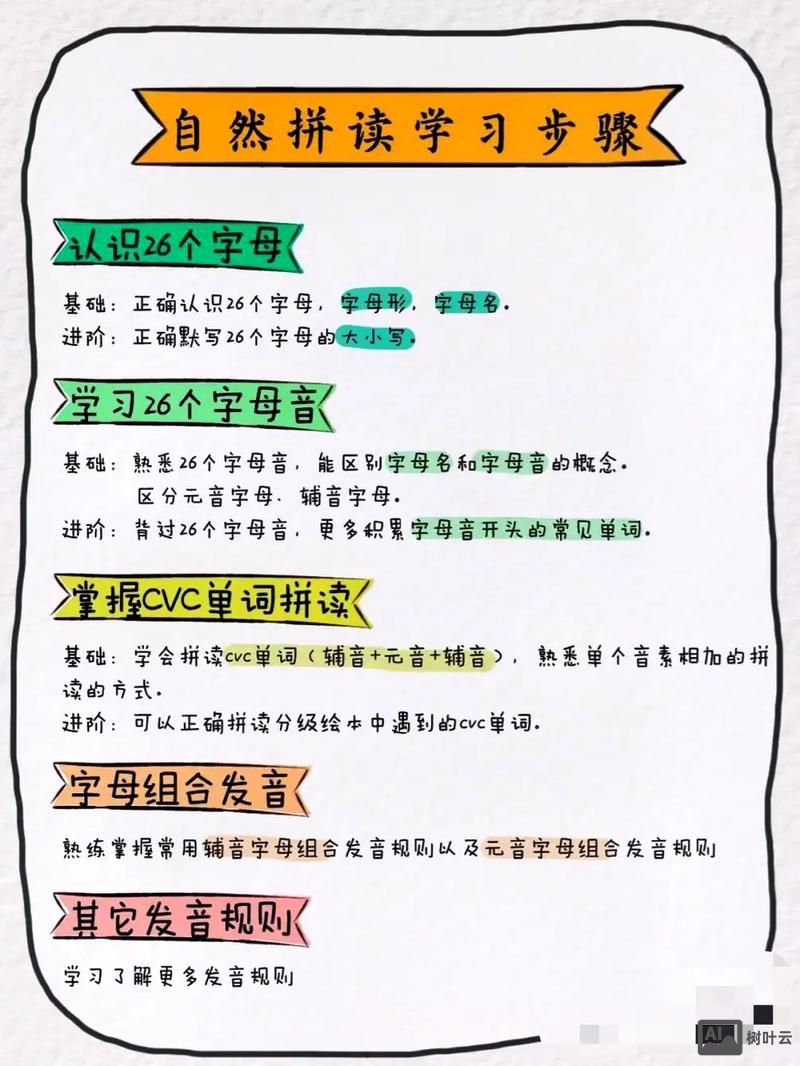 自然拼读学习步骤
认识26个字母
基础：正确认识26个字母，字母形，字母名。
进阶：正确默写26个字母的大小写。
学习26个字母音
基础：熟悉26个字母音，能区别字母名和字母音的概念。
区分元音字母、辅音字母。
进阶：背过26个字母音，更多积累字母音开头的常见单词。
掌握CVC单词拼读
基础：学会拼读cvc单词（辅音+元音+辅音），熟悉单个音素相加的拼
读的方式。
进阶：可以正确拼读分级绘本中遇到的cvc单词。
字母组合发音
熟练掌握常用辅音字母组合发音规则以及元音字母组合发音规则
其它发音规则
学习了解更多发音规则
AI 树叶云